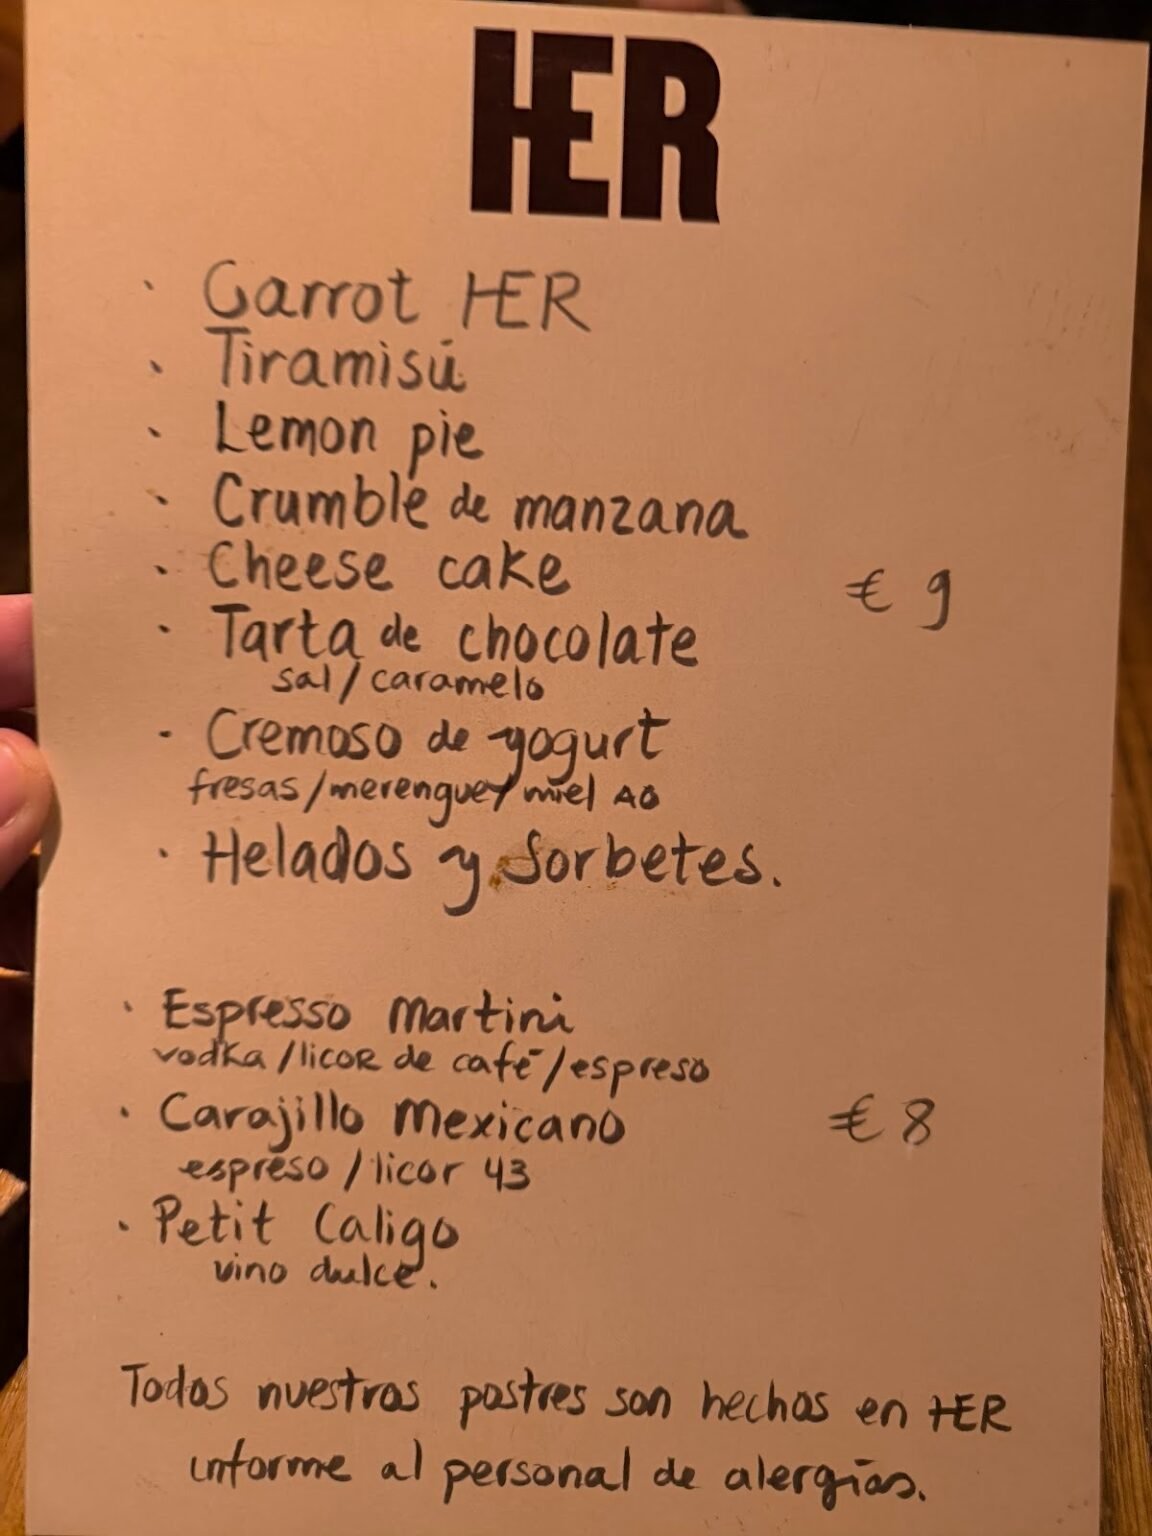 HER
· Carrot HER
· Tiramisú
· Lemon pie
· Crumble de manzana
· Cheese cake
€ 9
· Tarta de chocolate
sal / caramelo
· Cremoso de yogurt
fresas / merengue / miel AO
· Helados y Sorbetes.
· Espresso Martini
vodka / licor de café / espreso
· Carajillo Mexicano
€ 8
espreso / licor 43
· Petit Caligo
vino dulce.
Todos nuestros postres son hechos en HER
informe al personal de alergías.